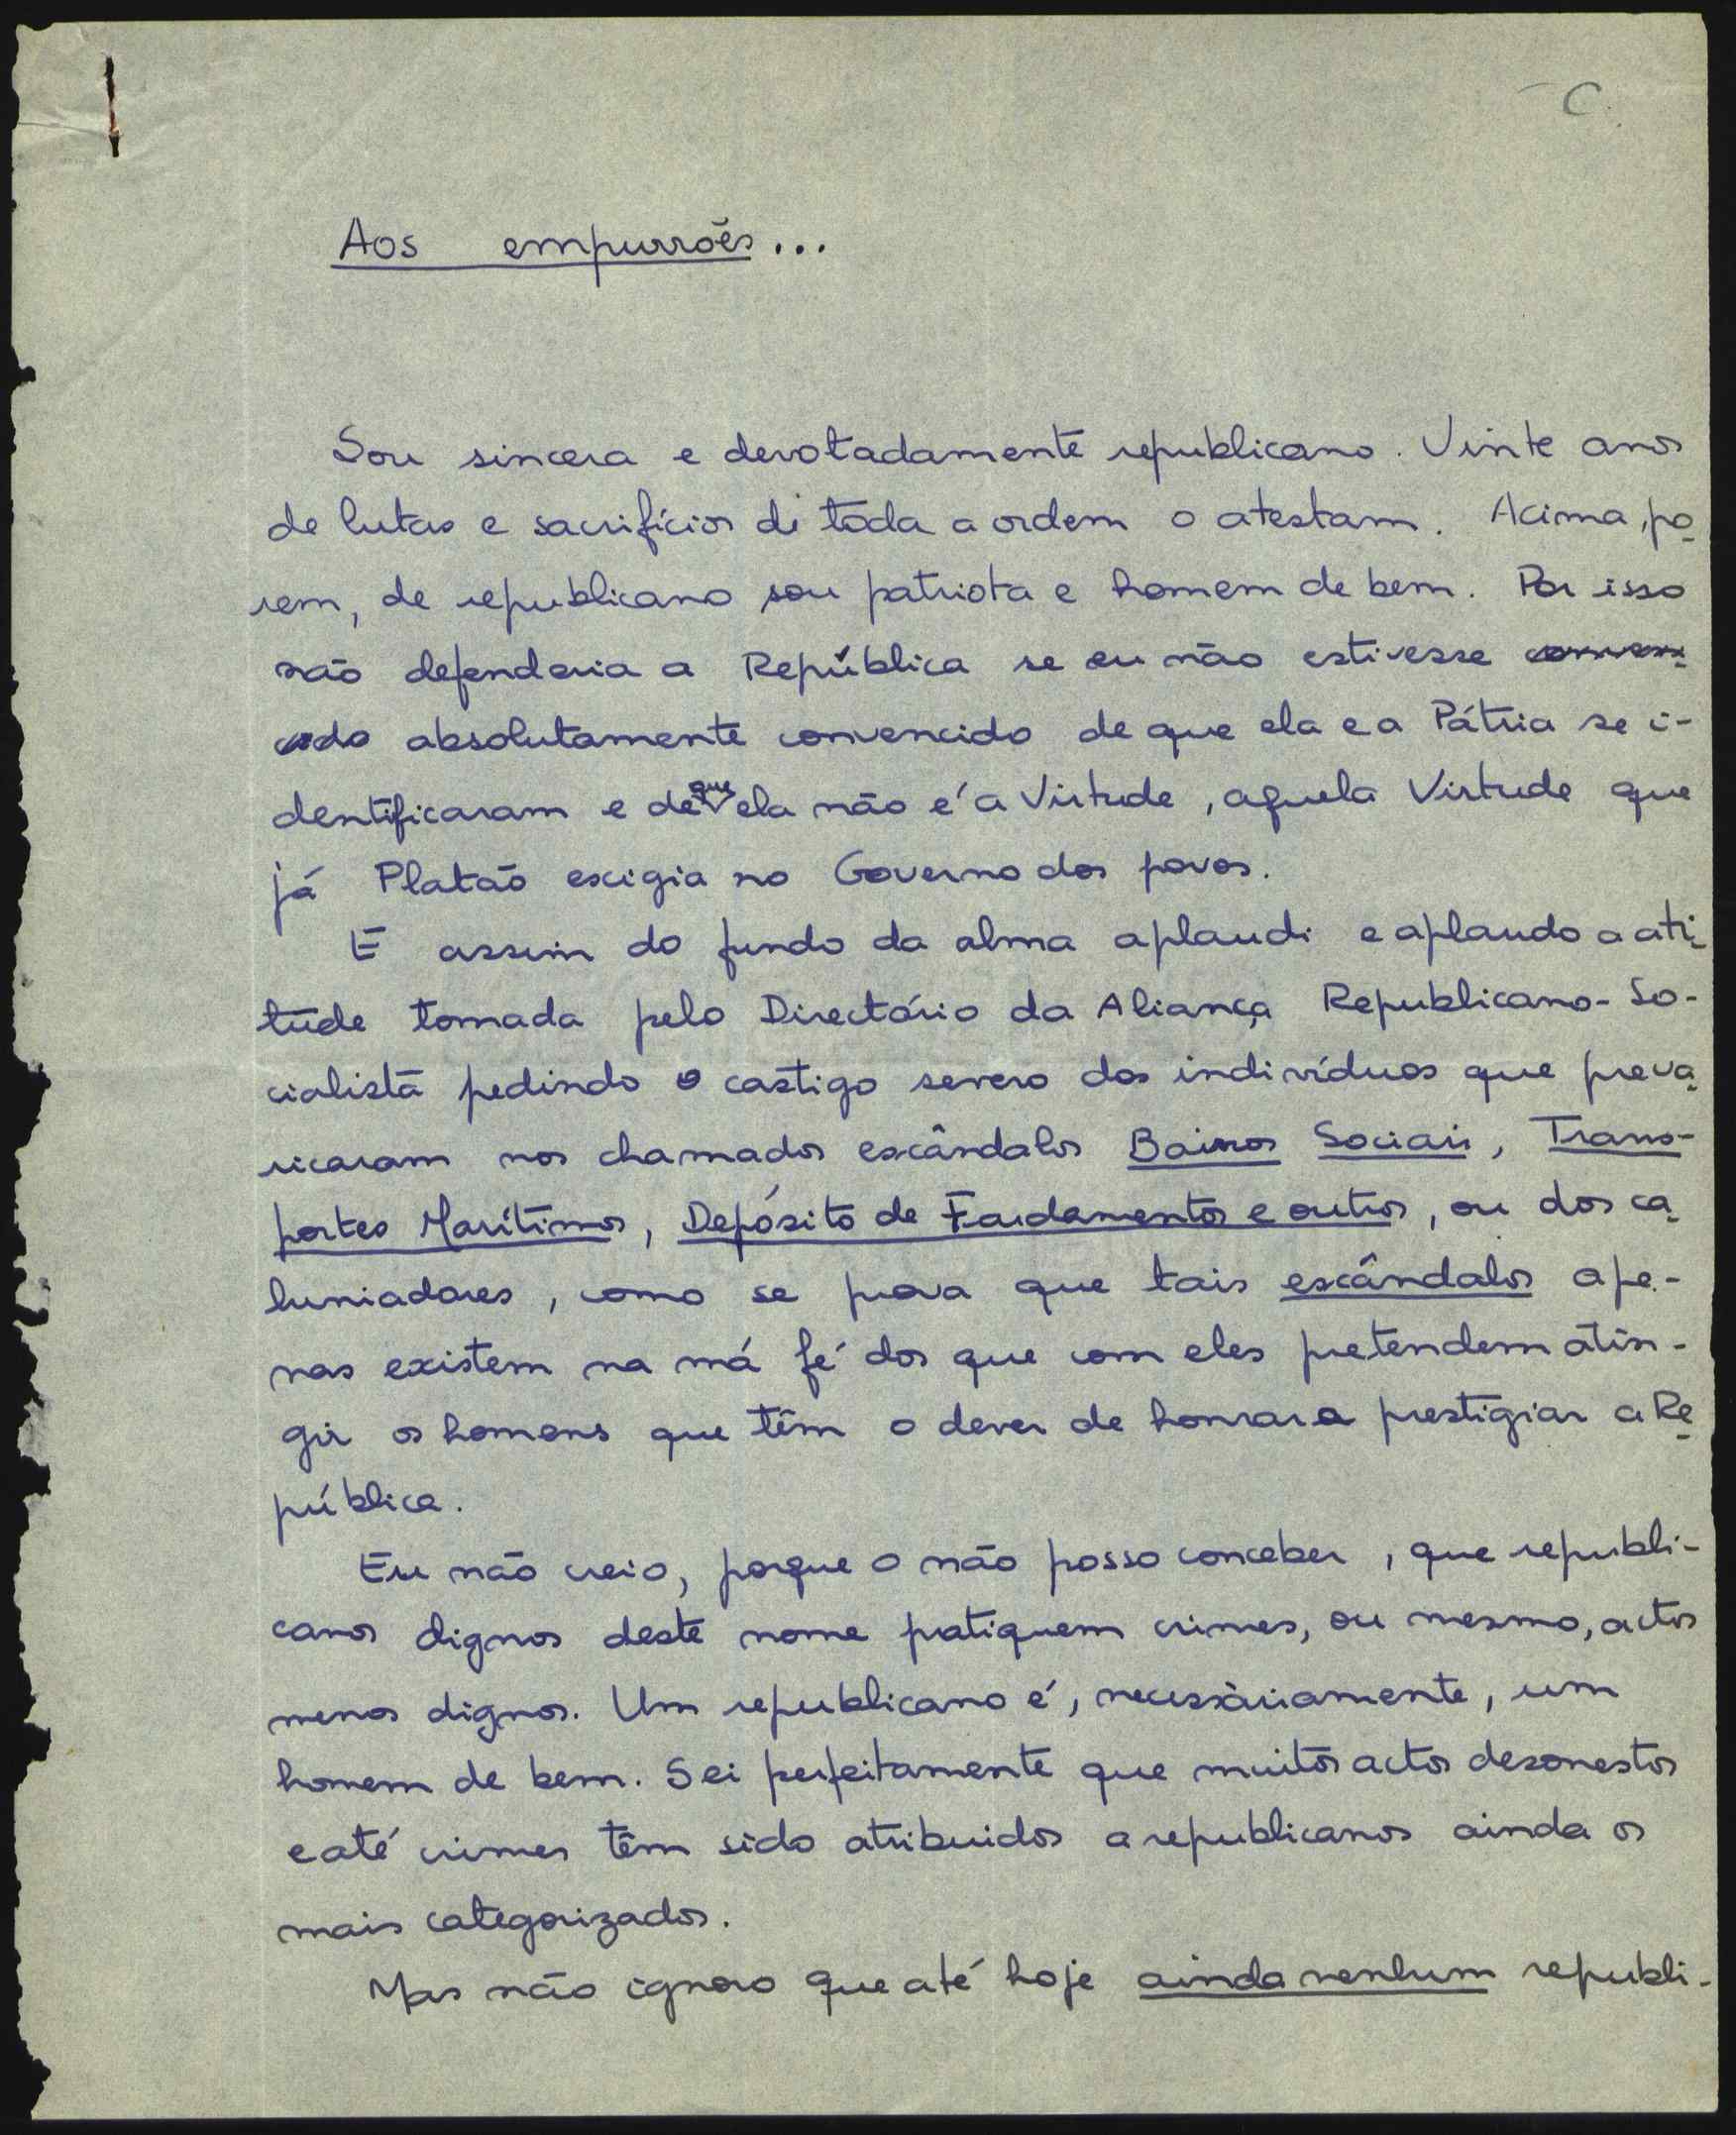 C
Aos empurrões...
Sou sincera e devotadamente republicano. Vinte anos
de lutas e sacrifícios de toda a ordem o atestam. Acima, po-
rem, de republicano sou patriota e homem de bem. Por isso
não defenderia a República se eu não estivesse conven-
cido absolutamente convencido de que ela e a Pátria se i-
dentificaram e de que ela não é a Virtude, aquela Virtude que
já Platão exigia no Governo dos povos.
E assim do fundo da alma aplaudi e aplaudo a ati-
tude tomada pelo Directório da Aliança Republicano-So-
cialista pedindo o castigo severo dos indivíduos que preva-
ricaram nos chamados escândalos Bairros Sociais, Trans-
portes Marítimos, Depósito de Fardamentos e outros, ou dos ca-
luniadores, como se prova que tais escândalos ape-
nas existem na má fé dos que com eles pretendem atin-
gir os homens que têm o dever de honrar e prestigiar a Re-
pública.
Eu não creio, porque o não posso conceber, que republi-
canos dignos deste nome pratiquem crimes, ou mesmo, actos
menos dignos. Um republicano é, necessàriamente, um
homem de bem. Sei perfeitamente que muitos actos desonestos
e até crimes têm sido atribuidos a republicanos ainda os
mais categorizados.
Mas não ignoro que até hoje ainda nenhum republi-